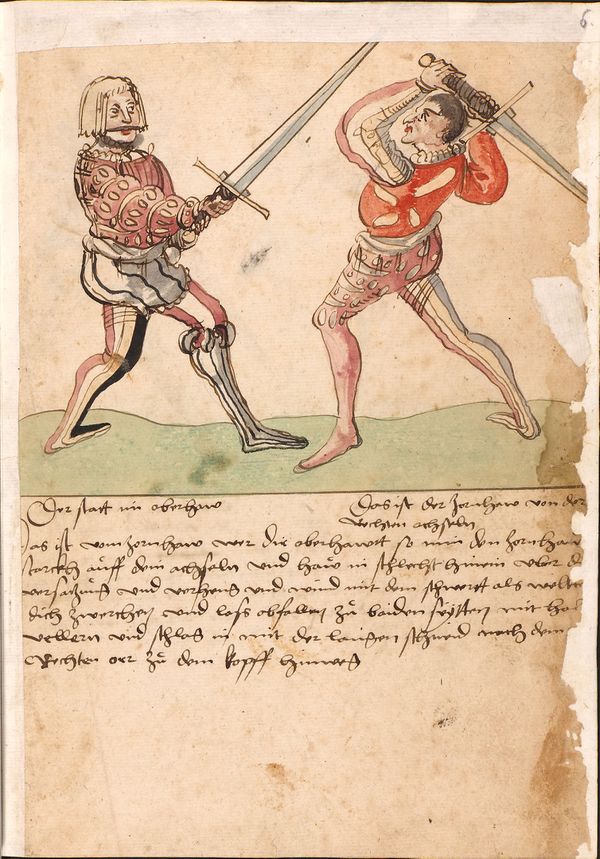 6
Der statt im oberhaw
Das ist der Zornhaw von der
Rechten achseln
Das ist vom Zornhaw wer dir oberhawt so nim den Zornhaw
starckh auff dem achseln und haw in schlecht hinein uber d
versatzung und und wind mit dem schwertt als weltest
dich zwerchen und lass abfallen zu baiden seytten mit
vellern und schlag in mit der langen schneid nach dem
Rechten orr zu dem kopff hinweg